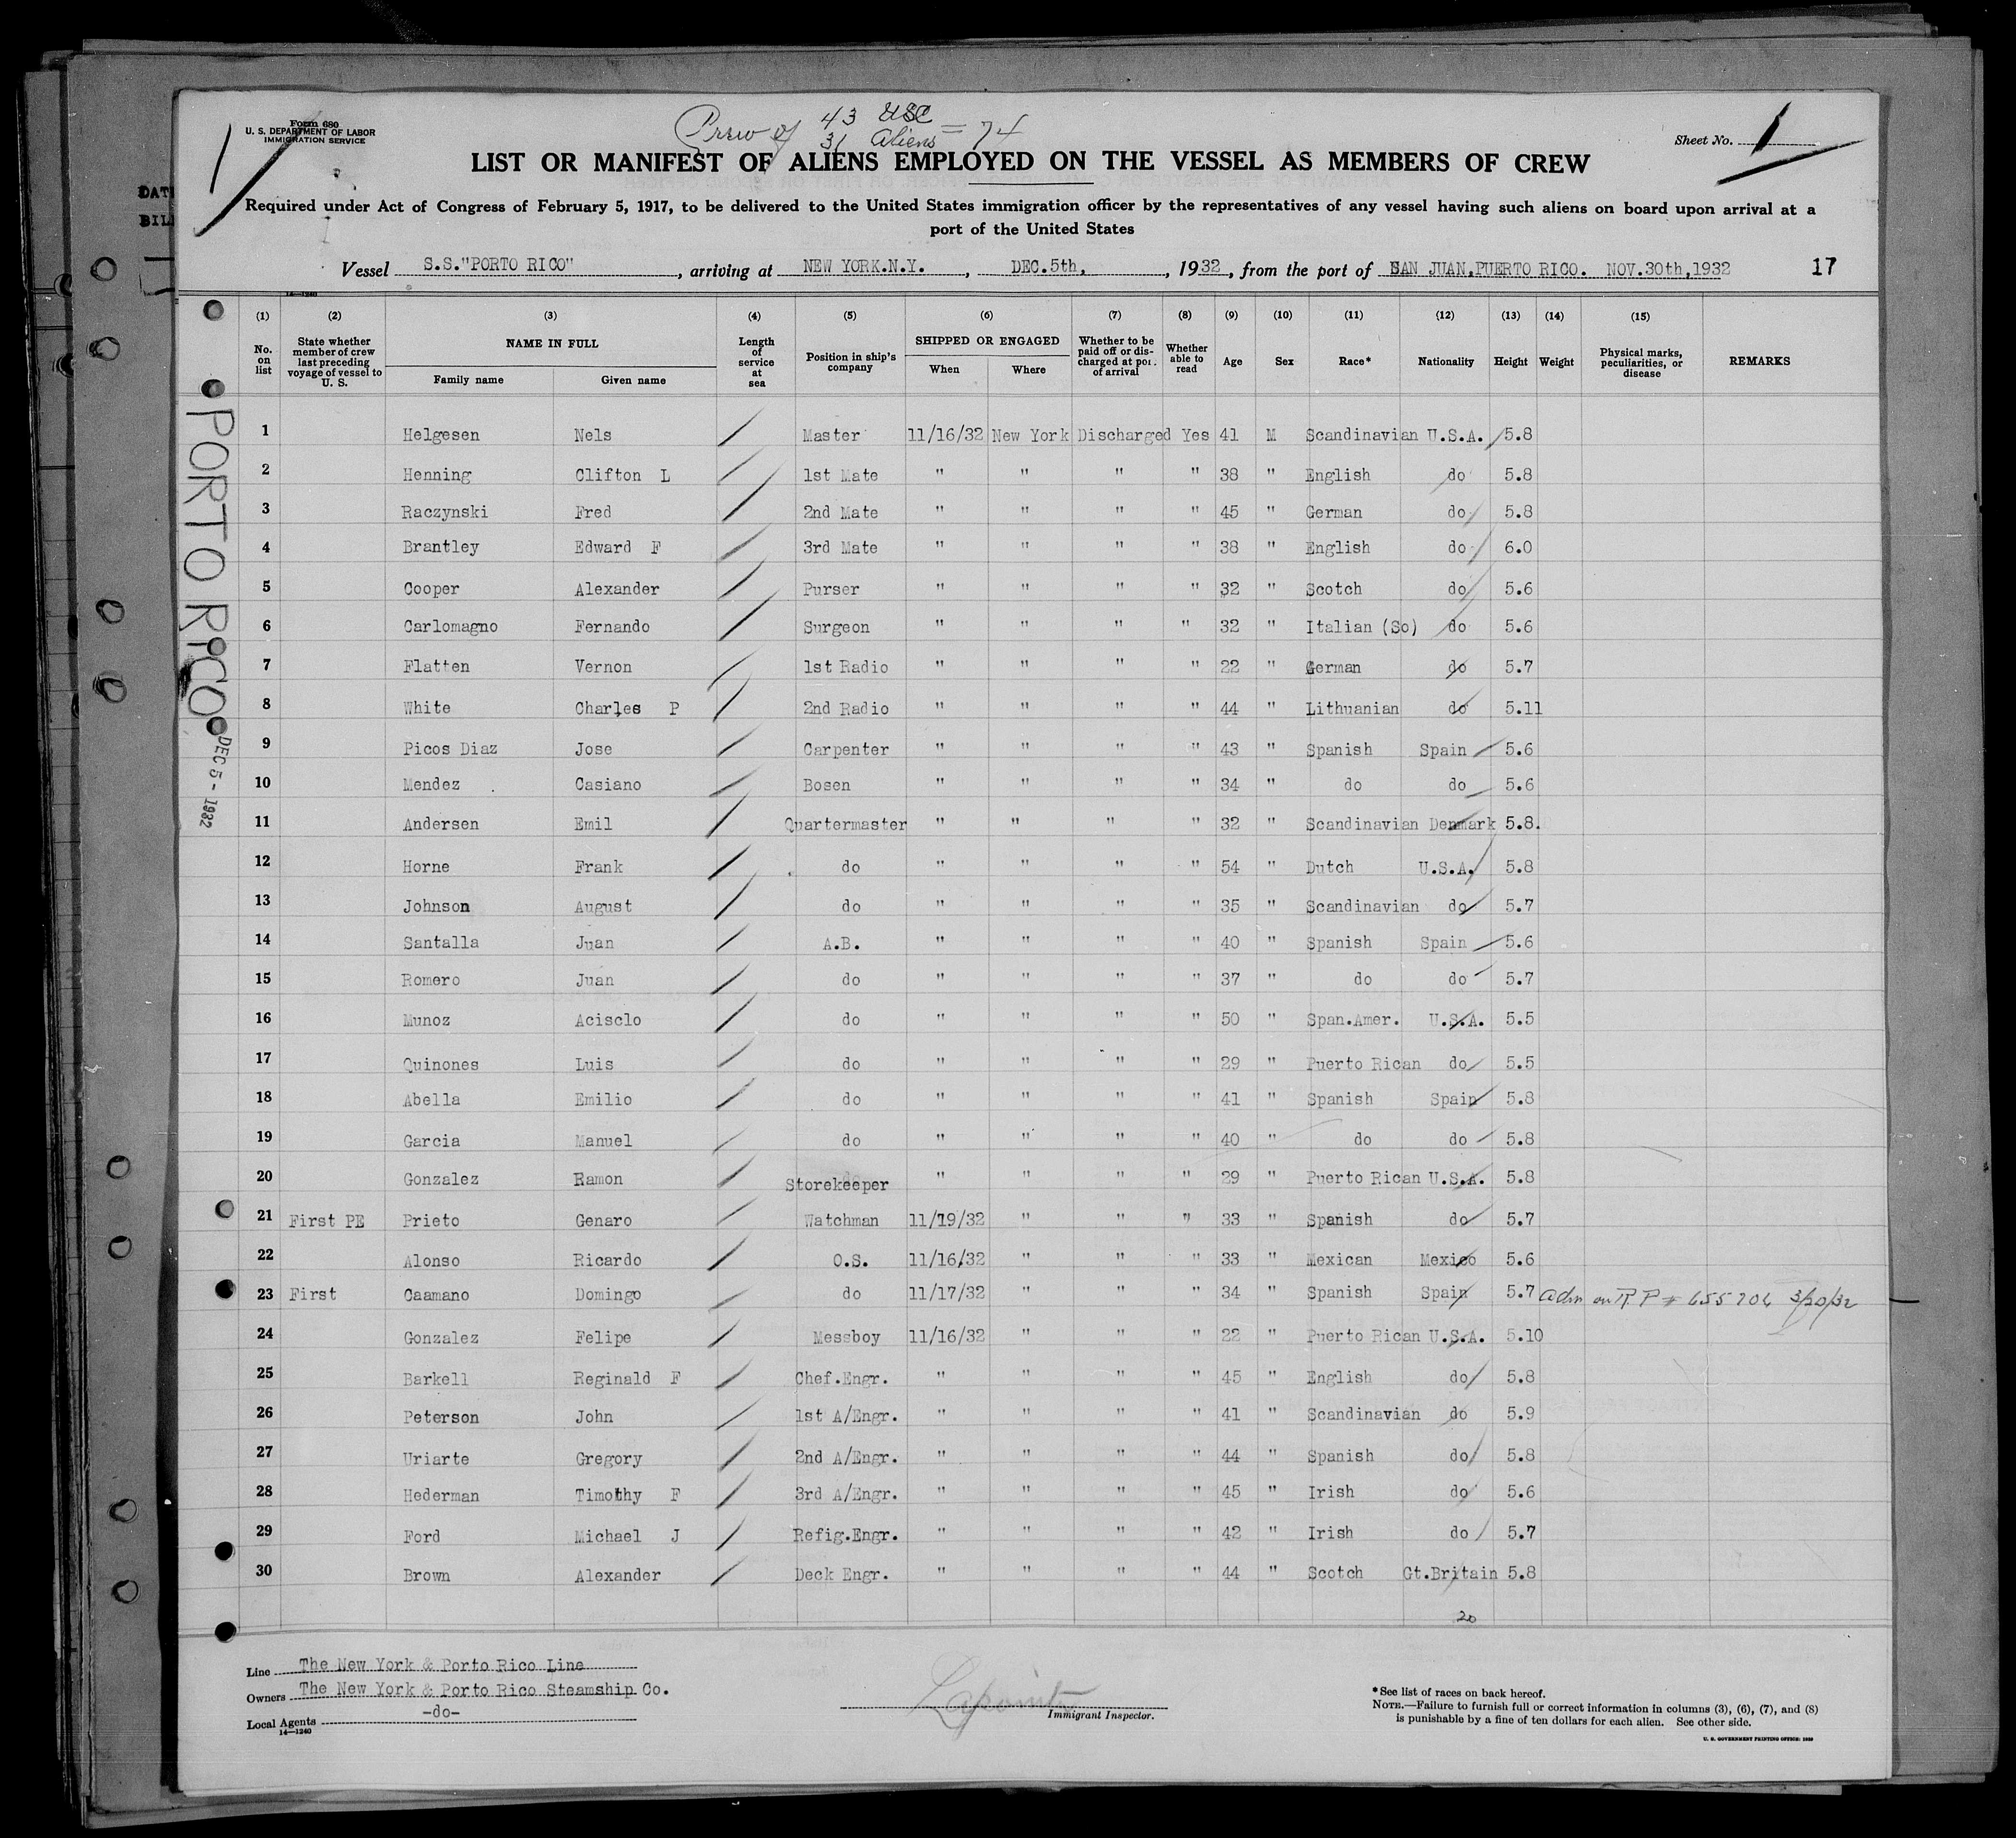 Form 680
U. S. DEPARTMENT OF LABOR
IMMIGRATION SERVICE
Crew of 43 USC
31 Aliens = 74
Sheet No. 1
LIST OR MANIFEST OF ALIENS EMPLOYED ON THE VESSEL AS MEMBERS OF CREW
Required under Act of Congress of February 5, 1917, to be delivered to the United States immigration officer by the representatives of any vessel having such aliens on board upon arrival at a
port of the United States
Vessel S.S."PORTO RICO", arriving at NEW YORK.N.Y., DEC.5th, , 1932, from the port of SAN JUAN,PUERTO RICO. NOV.30th,1932 17
14—1240
DAT
BIL
PORTO RICO
DEC 5 - 1932
(1) (2) (3) (4) (5) (6) (7) (8) (9) (10) (11) (12) (13) (14) (15)
No. on list | State whether member of crew last preceding voyage of vessel to U. S. | NAME IN FULL Family name Given name | Length of service at sea | Position in ship's company | SHIPPED OR ENGAGED When Where | Whether to be paid off or discharged at port of arrival | Whether able to read | Age | Sex | Race* | Nationality | Height | Weight | Physical marks, peculiarities, or disease | REMARKS
1 Helgesen Nels Master 11/16/32 New York Discharged Yes 41 M Scandinavian U.S.A. 5.8
2 Henning Clifton L 1st Mate " " " " 38 " English do 5.8
3 Raczynski Fred 2nd Mate " " " " 45 " German do 5.8
4 Brantley Edward F 3rd Mate " " " " 38 " English do 6.0
5 Cooper Alexander Purser " " " " 32 " Scotch do 5.6
6 Carlomagno Fernando Surgeon " " " " 32 " Italian (So) do 5.6
7 Flatten Vernon 1st Radio " " " " 22 " German do 5.7
8 White Charles P 2nd Radio " " " " 44 " Lithuanian do 5.11
9 Picos Diaz Jose Carpenter " " " " 43 " Spanish Spain 5.6
10 Mendez Casiano Bosen " " " " 34 " do do 5.6
11 Andersen Emil Quartermaster " " " " 32 " Scandinavian Denmark 5.8.
12 Horne Frank do " " " " 54 " Dutch U.S.A. 5.8
13 Johnson August do " " " " 35 " Scandinavian do 5.7
14 Santalla Juan A.B. " " " " 40 " Spanish Spain 5.6
15 Romero Juan do " " " " 37 " do do 5.7
16 Munoz Acisclo do " " " " 50 " Span.Amer. U.S.A. 5.5
17 Quinones Luis do " " " " 29 " Puerto Rican do 5.5
18 Abella Emilio do " " " " 41 " Spanish Spain 5.8
19 Garcia Manuel do " " " " 40 " do do 5.8
20 Gonzalez Ramon Storekeeper " " " " 29 " Puerto Rican U.S.A. 5.8
21 First PE Prieto Genaro Watchman 11/19/32 " " " 33 " Spanish do 5.7
22 Alonso Ricardo O.S. 11/16/32 " " " 33 " Mexican Mexico 5.6
23 First Caamano Domingo do 11/17/32 " " " 34 " Spanish Spain 5.7 adm on R.P # 655704 3/20/32
24 Gonzalez Felipe Messboy 11/16/32 " " " 22 " Puerto Rican U.S.A. 5.10
25 Barkell Reginald F Chef.Engr. " " " " 45 " English do 5.8
26 Peterson John 1st A/Engr. " " " " 41 " Scandinavian do 5.9
27 Uriarte Gregory 2nd A/Engr. " " " " 44 " Spanish do 5.8
28 Hederman Timothy F 3rd A/Engr. " " " " 45 " Irish do 5.6
29 Ford Michael J Refig.Engr. " " " " 42 " Irish do 5.7
30 Brown Alexander Deck Engr. " " " " 44 " Scotch Gt.Britain 5.8
20
Line The New York & Porto Rico Line
Owners The New York & Porto Rico Steamship Co.
Local Agents -do-
14—1240
Immigrant Inspector.
*See list of races on back hereof.
NOTE.—Failure to furnish full or correct information in columns (3), (6), (7), and (8)
is punishable by a fine of ten dollars for each alien. See other side.